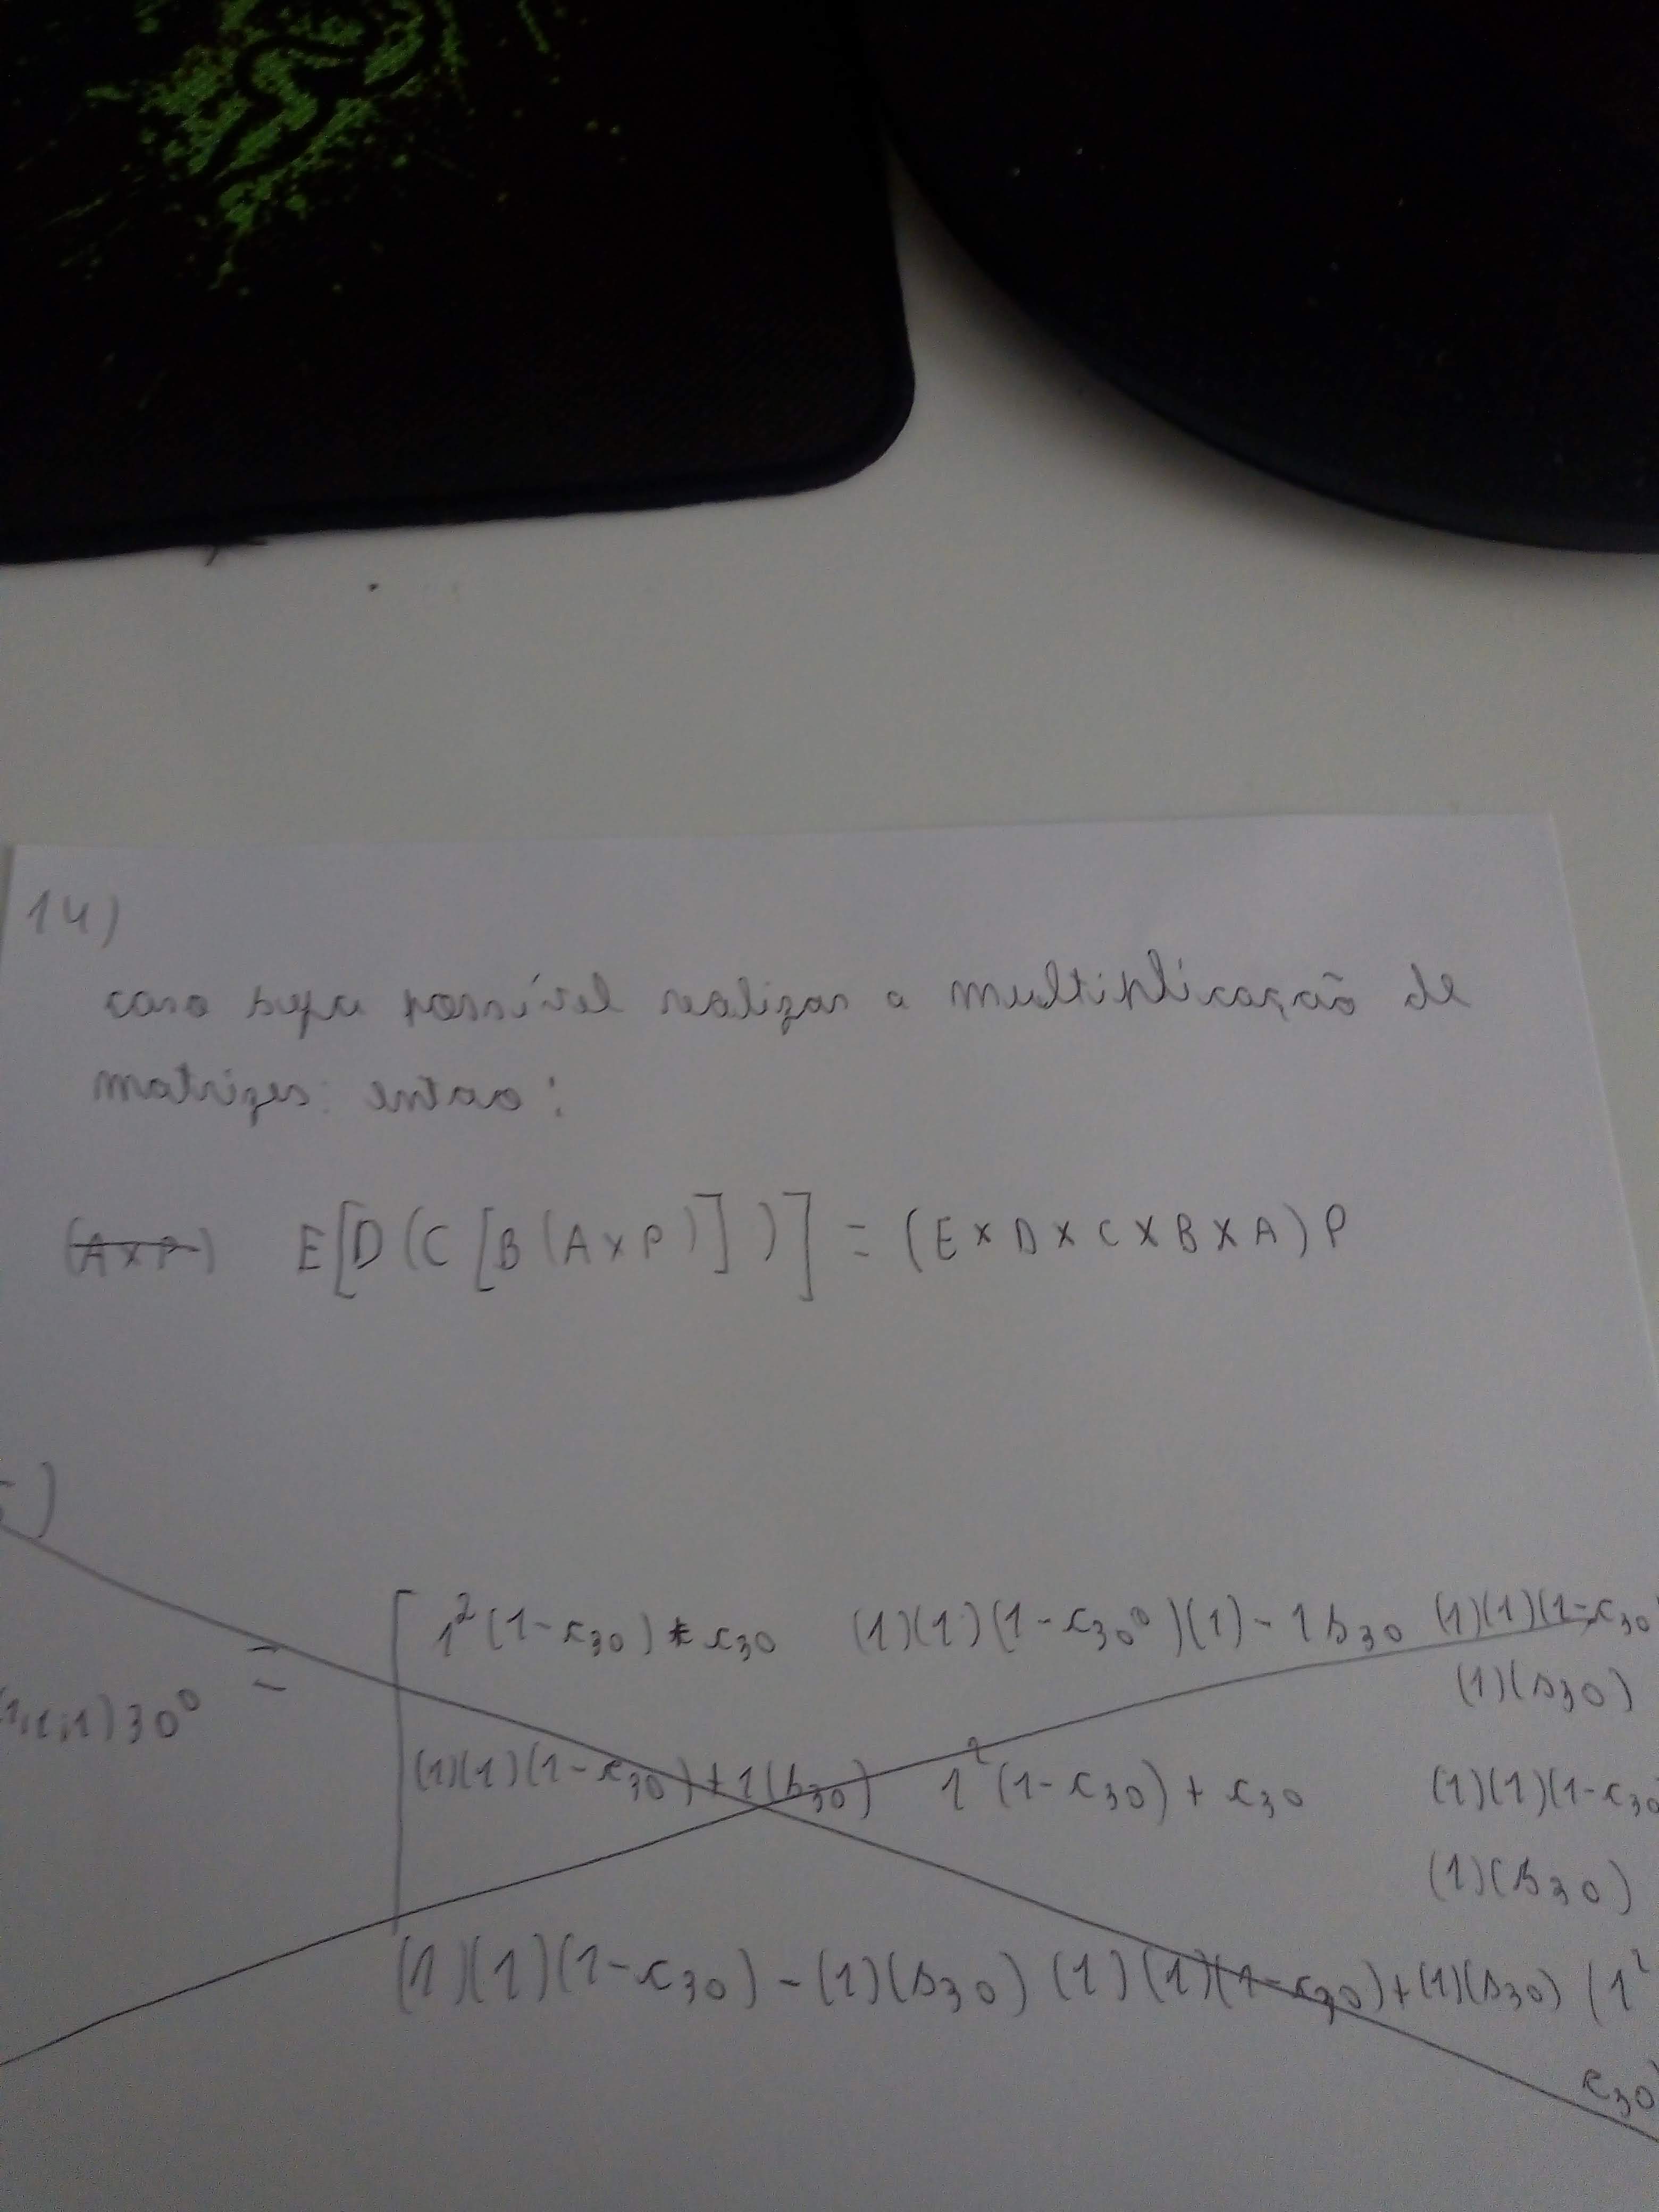 14)
caso seja possível realizar a multiplicação de
matrizes: entao:
(A x P) E[D(C[B(AxP)])] = (E x D x C x B x A)P
5)
(1,1,1)30° =
1²(1-c30)+c30 (1)(1)(1-c30°)(1)-1s30 (1)(1)(1-c30
(1)(s30)
(1)(1)(1-c30)+1(s30) 1²(1-c30)+c30 (1)(1)(1-c30
(1)(s30)
(1)(1)(1-c30)-(1)(s30) (1)(1)(1-c30)+(1)(s30) (1²
c30